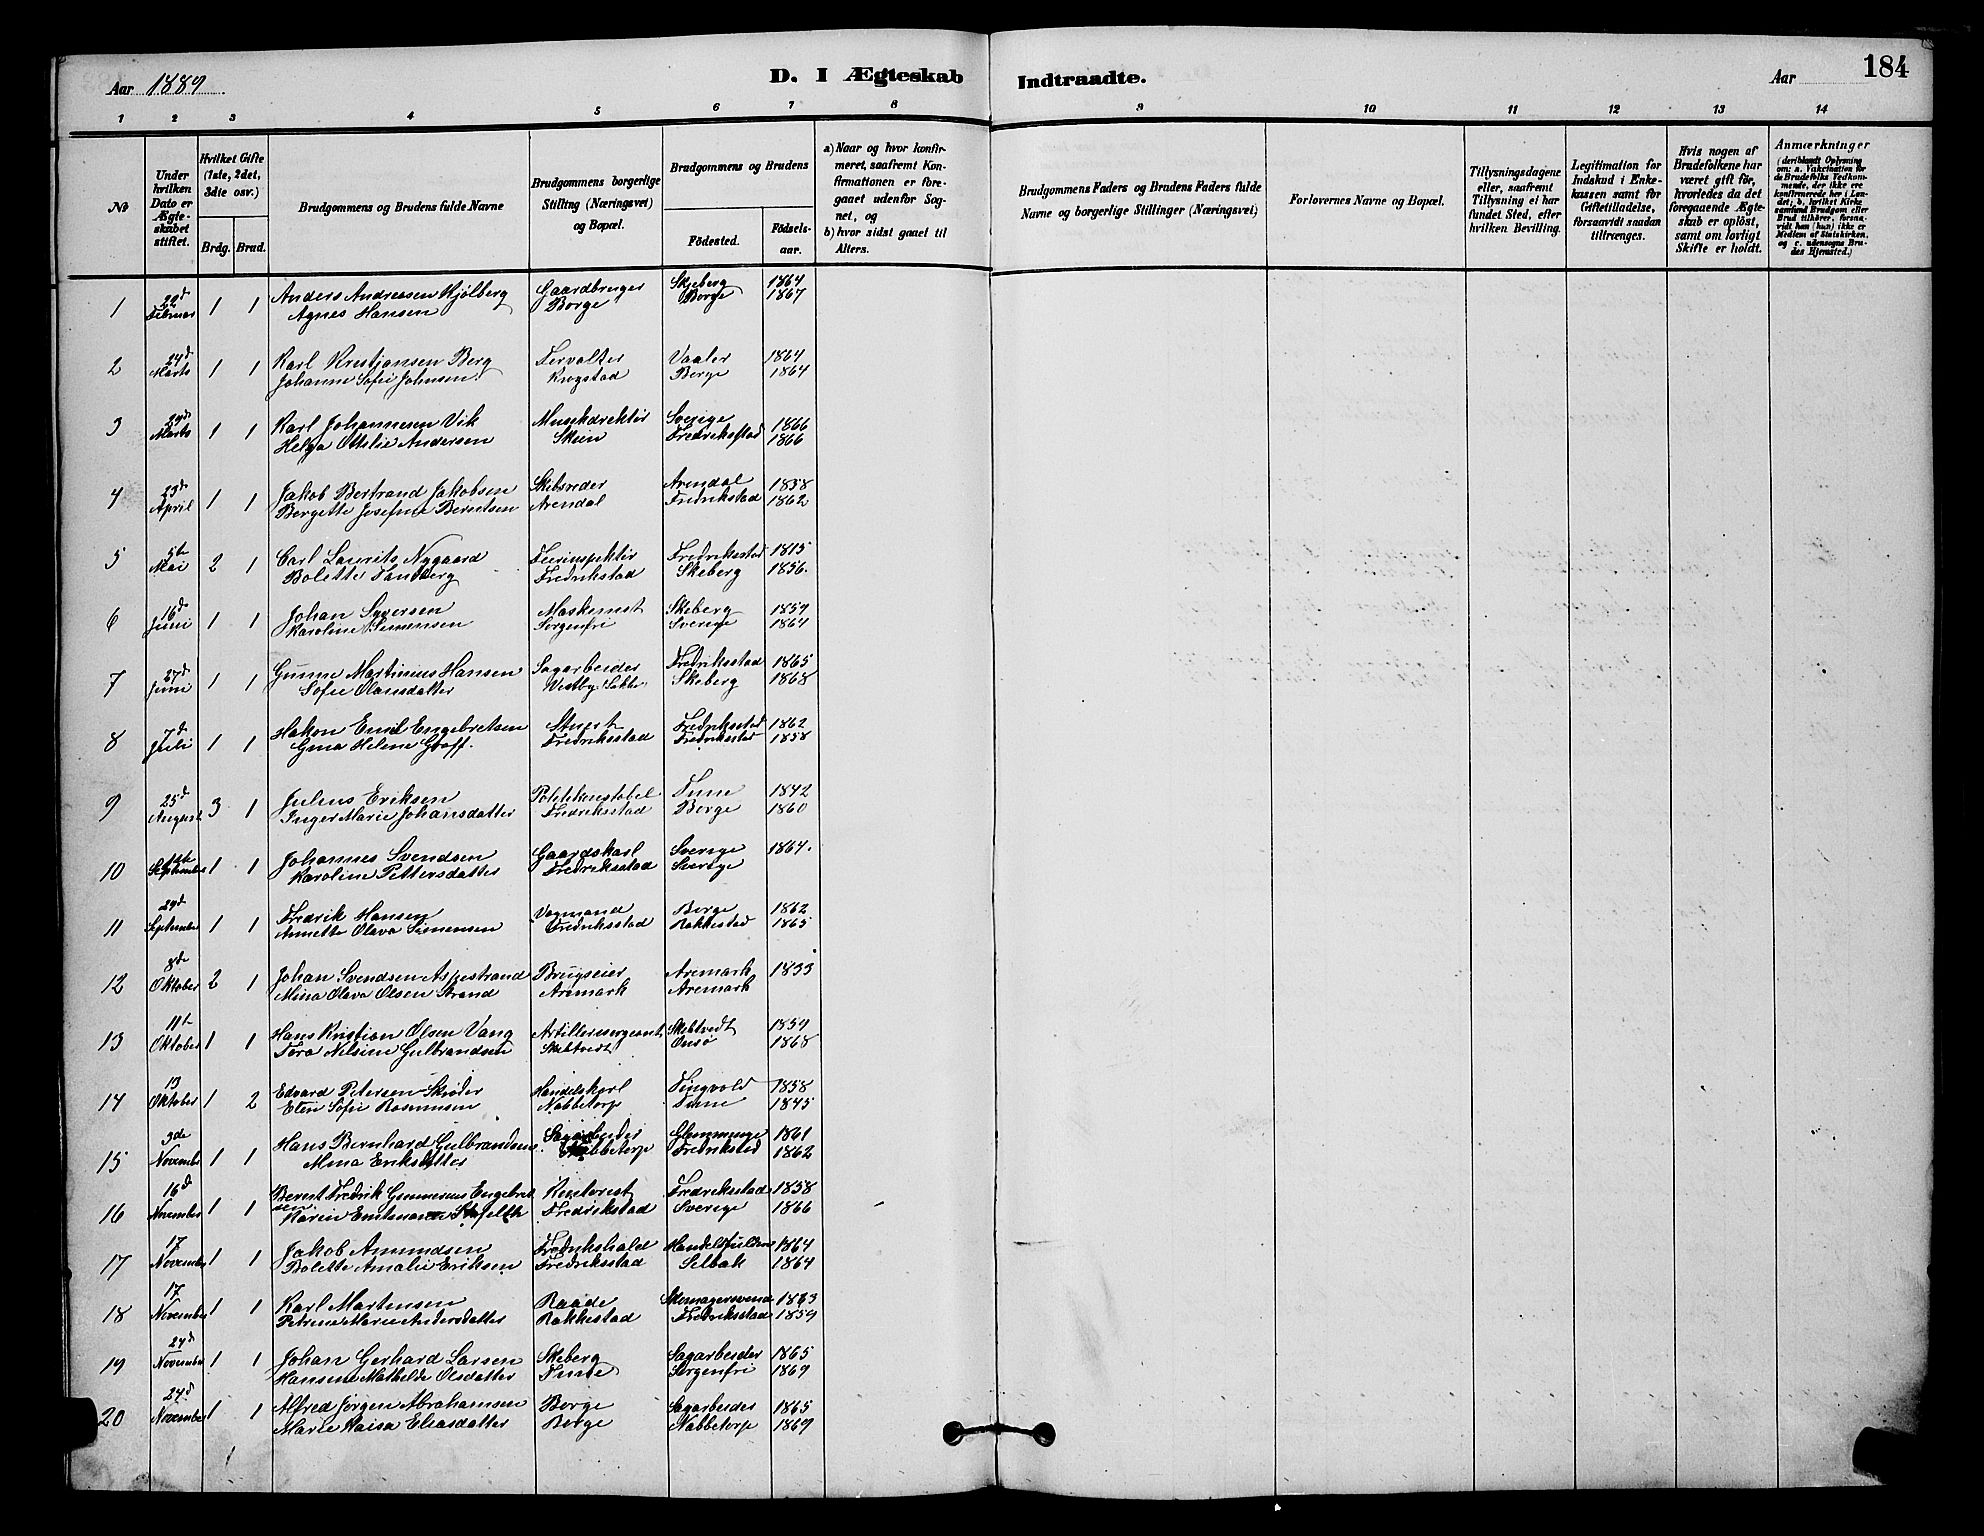 Aar 1889.
D. I Ægteskab
Indtraadte.
Aar
184
1 2 3 4 5 6 7 8 9 10 11 12 13 14
No
Under hvilken Dato er Ægteskabet stiftet.
Hvilket Gifte (1ste, 2det, 3die osv.)
Brdg. Brud.
Brudgommens og Brudens fulde Navne
Brudgommens borgerlige Stilling (Næringsvei) og Bopæl.
Brudgommens og Brudens
Fødested.
Fødselsaar.
a) Naar og hvor konfirmeret, saafremt Konfirmationen er foregaaet udenfor Sognet, og
b) hvor sidst gaaet til Alters.
Brudgommens Faders og Brudens Faders fulde Navne og borgerlige Stillinger (Næringsvei)
Forlovernes Navne og Bopæl.
Tillysningsdagene eller, saafremt Tillysning ei har fundet Sted, efter hvilken Bevilling.
Legitimation for Indskud i Enkekassen samt for Giftetilladelse, forsaavidt saadan tiltrænges.
Hvis nogen af Brudefolkene har været gift før, hvorledes da det foregaaende Ægteskab er opløst, samt om lovligt Skifte er holdt.
Anmærkninger (deriblandt Oplysning om: a. Vakcination for de Brudefolks Vedkommende, der ikke ere konfirmerede her i Landet; b. hvilket Kirkesamfund Brudgom eller Brud tilhører, forsaavidt han (hun) ikke er Medlem af Statskirken, og c. udensogns Brudes Hjemsted.)
1 22d Februar 1 1 Anders Andreasen Kjølberg Gaardbruger Skjeberg 1864
Agnes Hansen Borge Borge 1867
2 24d Marts 1 1 Karl Kristjansen Berg Forvalter Vaaler 1864
Johanne Sofie Johnsen Krogstad Borge 1864
3 29d Marts 1 1 Karl Johannesen Vik Musikdirektør Sverige 1866
Helga Othilie Andersen Skien Fredriksstad 1866
4 23d April 1 1 Jakob Bertrand Jakobsen Skibsreder Arendal 1838
Bergette Josefine Berntsen Arendal Fredrikstad 1862
5 5te Mai 2 1 Carl Laurits Nygaard Feierinspektør Fredrikstad 1815
Bolette Tandberg Fredrikstad Skeberg 1856.
6 16d Juni 1 1 Johan Syversen Maskinist Skeberg 1859
Karoline Simensen Sorgenfri Sverige 1864
7 27d Juni 1 1 Gunne Martinius Hansen Sagarbeider Fredriksstad 1865
Sofie Olausdatter Vestby Skeberg 1868
8 7d Juli 1 1 Hakon Emil Engebretsen Stuert Fredriksstad 1862
Gina Helene Graff. Fredriksstad Fredrikstad 1858
9 25d August 3 1 Julius Eriksen Politikonstabel Tune 1842
Inger Marie Johansdatter Fredriksstad Borge 1860
10 September 1 1 Johannes Svendsen Gaardskarl Sverige 1864.
Karoline Pettersdatter Fredriksstad Sverige
11 29d September 1 1 Fredrik Hansen Vognmand Borge 1862
Annette Olava Simensen Fredriksstad Rakkestad 1865
12 8de Oktober 2 1 Johan Svendsen Aspestrand Brugseier Aremark 1833
Mina Olava Olsen Strand Aremark Aremark
13 11te Oktober 1 1 Hans Kristian Olsen Vang Artillerisergeant Skibtvedt 1859
Tora Nilsine Gulbrandsen Skibtvedt Onsø 1868
14 13 Oktober 1 2 Edvard Petersen Skrøder Handelskarl Tingvold 1858
Elen Sofie Rasmusen Nabbetorp Tune 1845
15 3de November 1 1 Hans Bernhard Gulbrandsen Sagarbeider Glemminge 1861
Mina Eriksdatter Nabbetorp Fredrikstad 1862
16 16d November 1 1 Bernt Fredrik Gunnerius Engebretsen Kontorist Fredriksstad 1858
Karin Fredrikstad Sverige 1866
17 17 November 1 1 Jakob Amundsen Fredrikshald 1864
Bolette Amalie Eriksen Fredriksstad Selbak 1864
18 17 November 1 1 Karl Martensen Raade Skomagersvend 1863
Petrine Marie Andersdatter Rakkestad Fredriksstad 1859
19 24d November 1 1 Johan Gerhard Larsen Skeberg Sagarbeider 1865
Hansine Mathilde Olsdatter Tune Sorgenfri 1869
20 24d November 1 1 Alfred Jørgen Abrahamsen Borge Sagarbeider 1865
Marie Kaisa Eliasdatter Borge Nabbetorp 1869